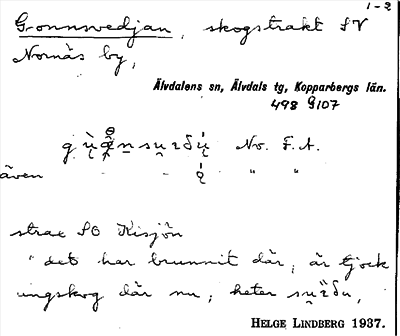 1-2
Gronnsvedjan, skogstrakt SV
Nornäs by,
Älvdalens sn, Älvdals tg, Kopparbergs län.
498 G107
No. F. A.
även - - " "
strax SO Kisjön
"det har brunnit där, är tjock
ungskog där nu, heter
HELGE LINDBERG 1937.